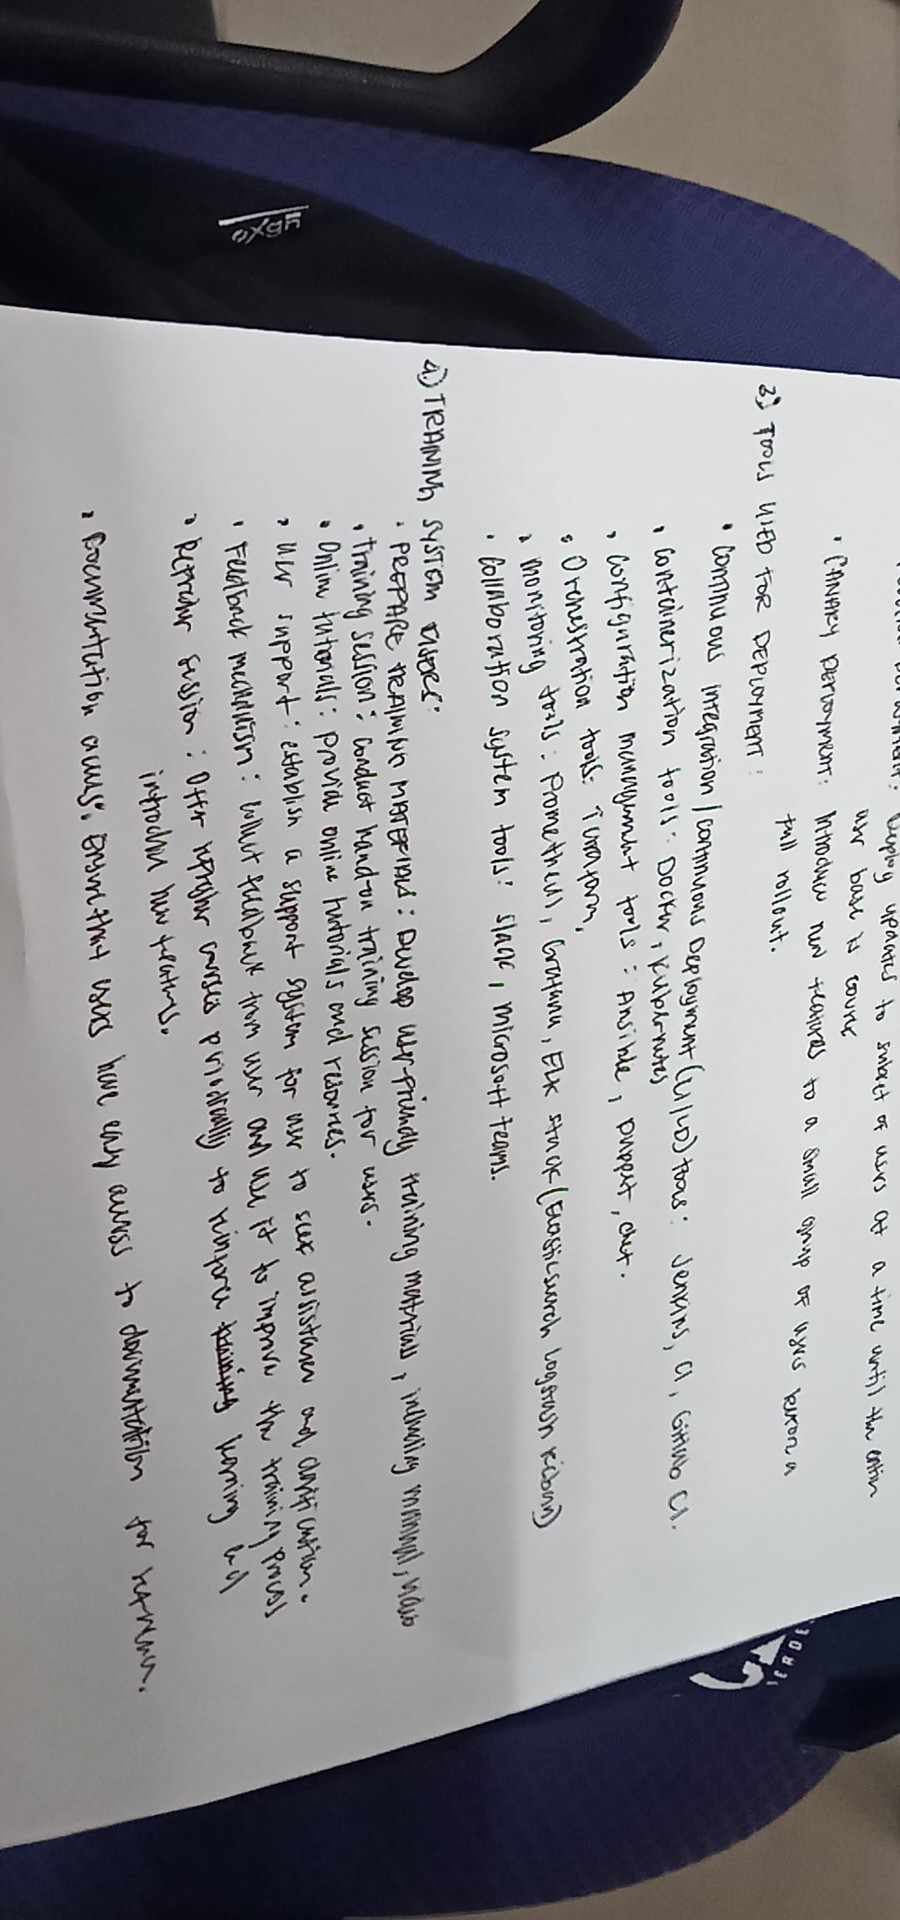 Deploy updates to subset of users at a time until the entire
user base is
• CANARY DEPLOYMENT: Introduce new features to a small group of users before a
full rollout.
3) TOOLS USED FOR DEPLOYMENT:
• Continuous integration / continuous Deployment (CI/CD) tools: Jenkins, CI, GitHub CI.
• Containerization tools: Docker, Kubernetes
• Configuration management tools: Ansible, Puppet, chef.
• Orchestration tools: Terraform,
• Monitoring tools: Prometheus, Grafana, ELK stack (Elasticsearch Logstash Kiban)
• Collaboration system tools: Slack, microsoft teams.
4) TRAINING SYSTEM USERS:
• PREPARE TRAINING MATERIALS: Develop user-friendly training materials, including manual,
• Training session: conduct hand-on training session for users.
• Online tutorials: provide online tutorials and resources.
• User support: establish a support system for user to seek assistance and clarification.
• Feedback mechanism: collect feedback from user and use it to improve the training process
• Refresher session: Offer refresher courses periodically to reinforce training learning and
introduce new features.
• Documentation access: Ensure that users have easy access to documentation for